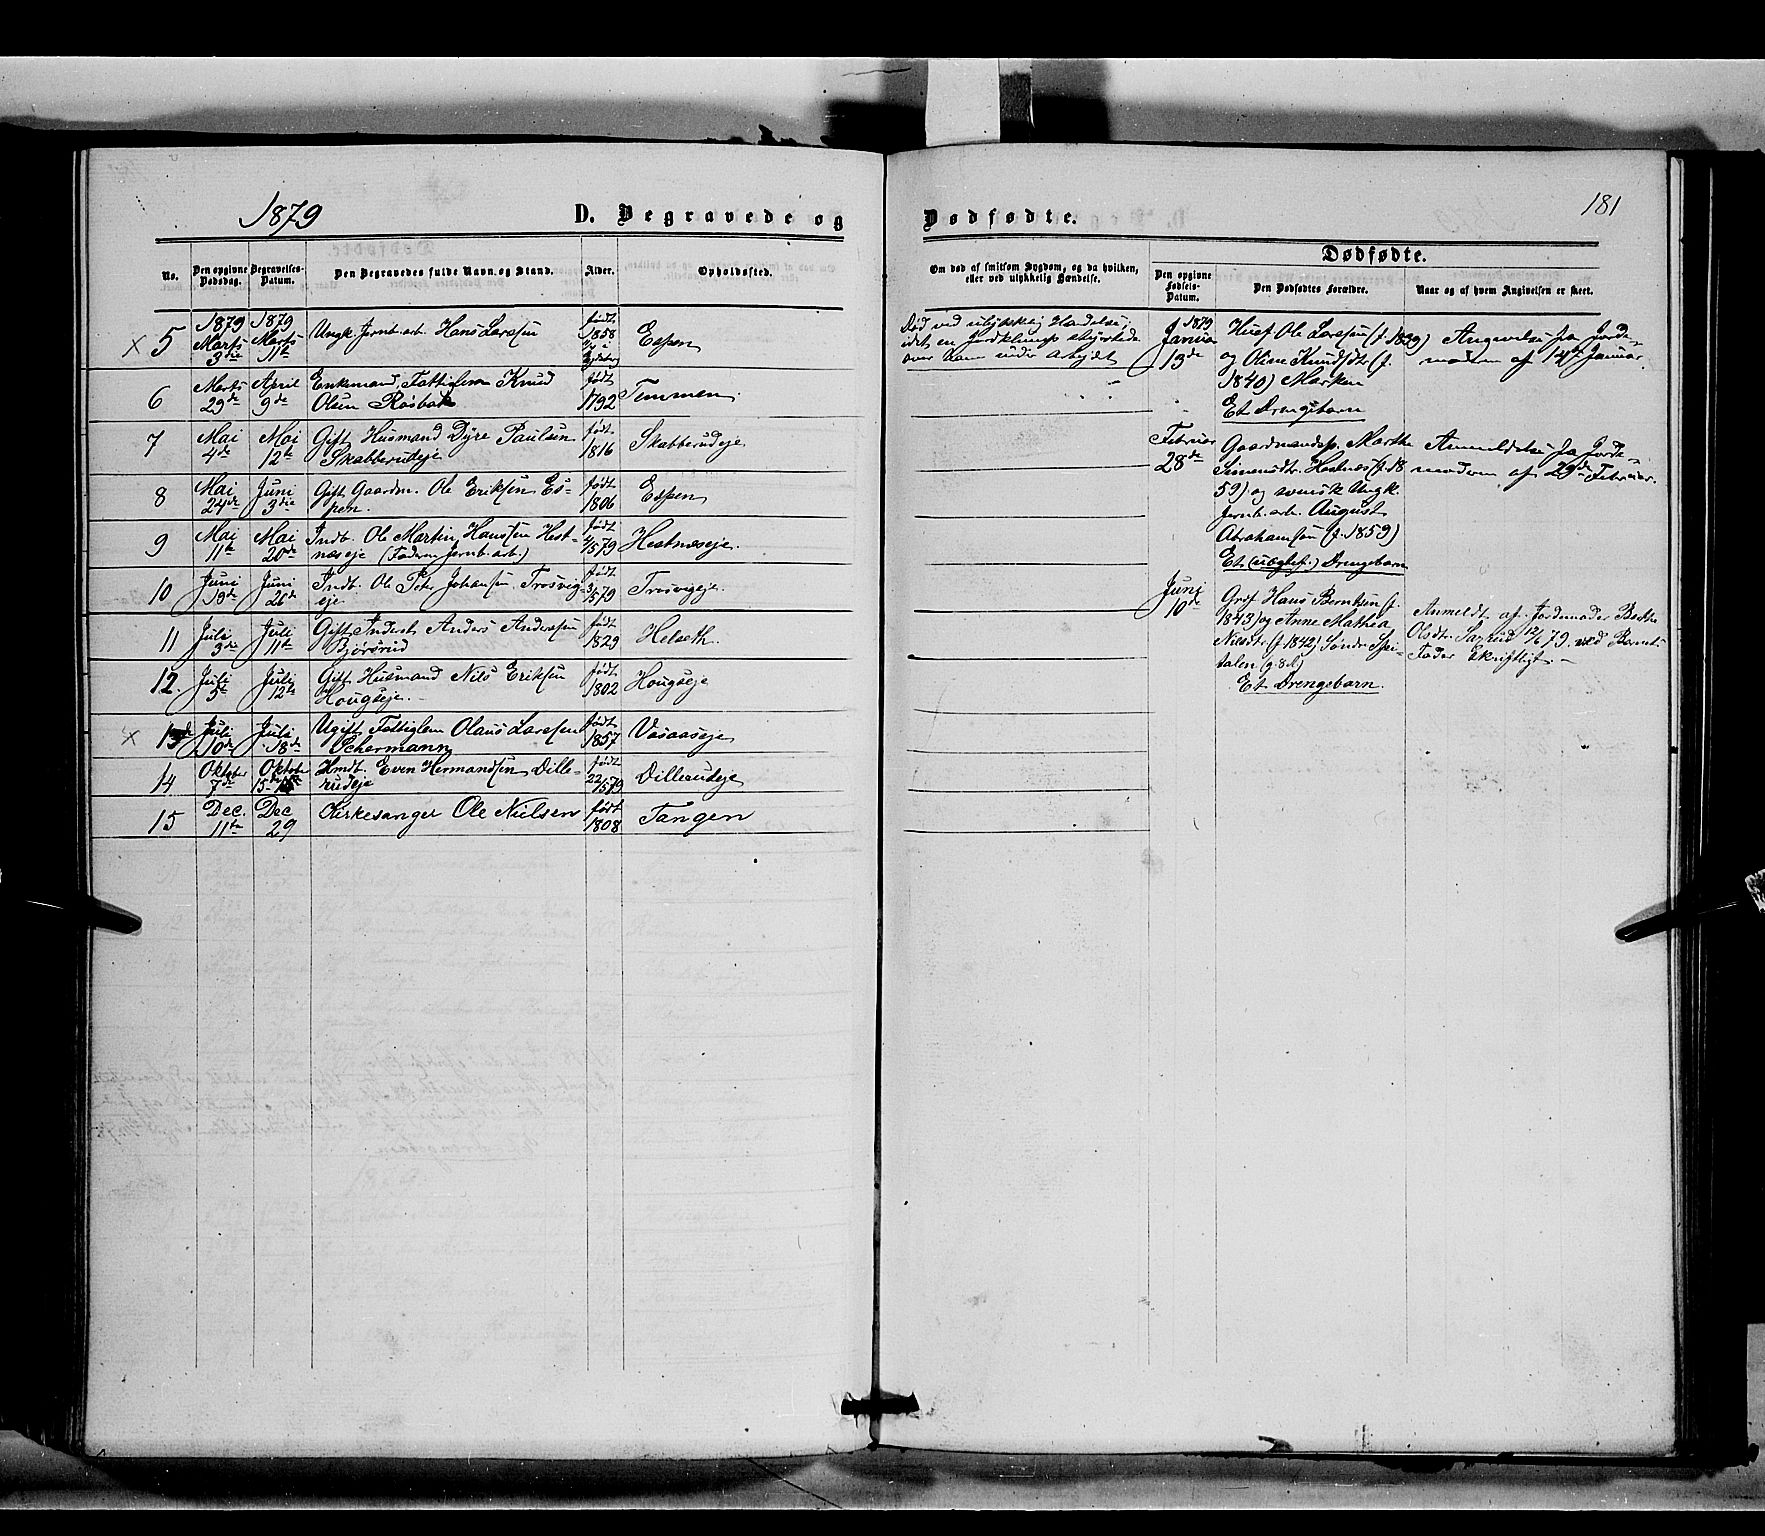 1879
D. Begravede og
No.
Den opgivne Dødsdag.
Begravelses-Datum.
Den Begravedes fulde Navn og Stand.
Alder.
Opholdssted.
× 5
1879 Marts 3die
1879 Marts 11te
Ungk. Jernb. arb. Hans Larsen
født 1858
Espen
6
Marts 29de
April 9de
Enkemand, Fattiglem Knud
Olsen Røsbak
født 1792
Temmen
7
Mai 4de
Mai 12te
Gift Husmand Dyre Paulsen
Skabberudeje
født 1816
Skabberudeje
8
Mai 24de
Juni 3die
Gift Gaardm. Ole Eriksen Es-
pen.
født 1806
Espen
9
Mai 11te
Mai 20de
Indb. Ole Martin Hansen Hest-
næseje (Faderen Jernb. arb.)
født 4/5 79
Hestnæseje.
10
Juni 19de
Juni 26de
Indb. Ole Peter Johansen Trosvig-
eje.
født 79
Trosvigeje.
11
Juli 3de
Juli 11te
Gift Inderst Anders Andersen
Bjørsrud
født 1829
Helseth.
12.
Juli 5te
Juli 12te
Gift Husmand Nils Eriksen
Hougseje.
født 1802
Hougseje
× 13
Juli 10de
Juli 18de
Ugift Fattiglem Olaus Larsen
Schermann
født 1857
Vasaaseje
14
Oktober 7de
Oktober 15
Hmdb. Even Hermandsen Dille-
rudeje
født 22/5 79
Dillerudeje
15
Dec. 11te
Dec 29
Kirkesanger Ole Nielsen
født 1808
Tangen
181
Dødfødte.
Om død af smitsom Sygdom, og da hvilken,
eller ved ulykkelig Hændelse.
Dødfødte.
Den opgivne Fødsels-Datum.
Den Dødfødtes Forældre.
Naar og af hvem Angivelsen er skeet.
Død ved ulykkelig Hændelse,
idet en Jordklump styrtede
over ham under arbejdet
1879 Januar 13de
Husf. Ole Larsen (f. 1839)
og Oline Knudsdtr (f.
1840) Marken
Et Drengebarn
Angivelse fra Jorde-
moderen af 14de Januar.
Februar 28de
Gaardmandsp. Marthe
Simensdtr. Hestnæs (f. 18
59) og svensk Ungk.
Jernb. arb. August
Abrahamsen (f. 1859)
Et (uægtef.) Drengebarn
Anmeldelse fra Jorde-
moderen af 29de Februar.
Juni 10de
Grdf. Hans Berntsen (f.
1843) og Anne Mathea
Nilsdtr (f 1842) Søndr. Spi-
talen
Et Drengebarn.
Anmeldt af Jordemoder Berthe
Olsdt. 12/6 79. ved Barnets
Fader Skriftligt. –